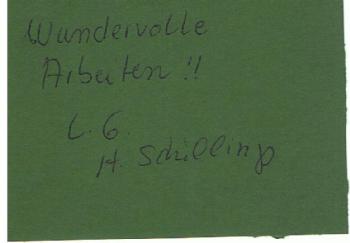 Wundervolle
Arbeiten !!
L. G.
H. Schilling